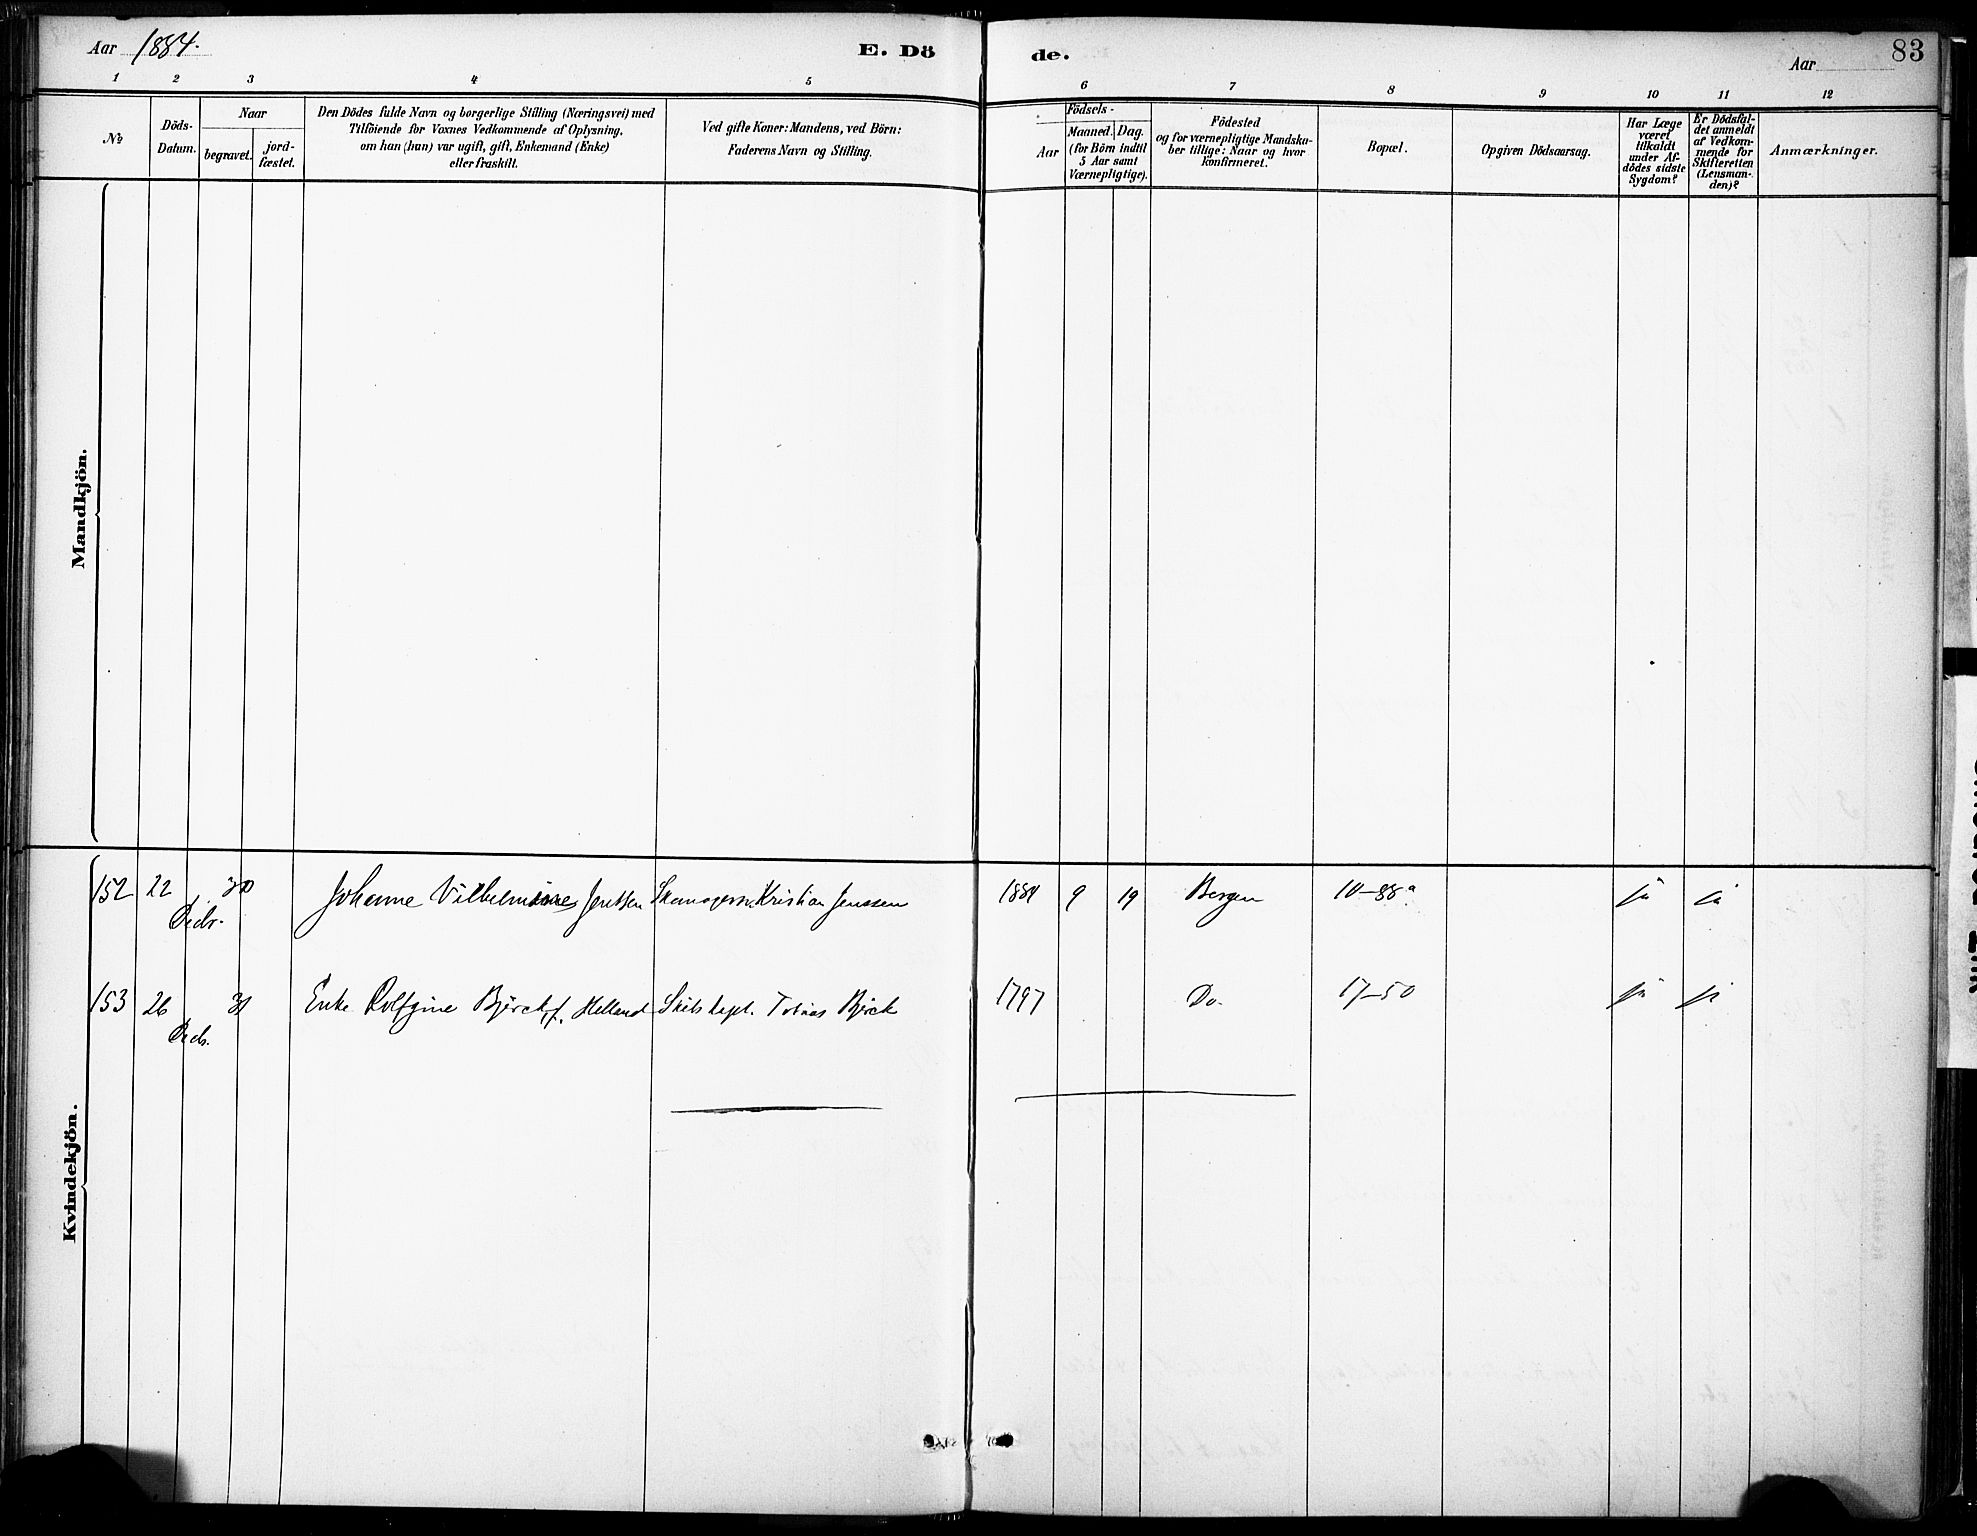 Aar 1884.
E. Dö
de.
Aar
83
1 2 3 4 5 6 7 8 9 10 11 12
No
Döds-
Datum.
Naar
begravet.
jord-
fæstet.
Den Dödes fulde Navn og borgerlige Stilling (Næringsvei) med
Tilföiende for Voxnes Vedkommende af Oplysning,
om han (hun) var ugift, gift, Enkemand (Enke)
eller fraskilt.
Ved gifte Koner: Mandens, ved Börn:
Faderens Navn og Stilling.
Födsels-
Aar
Maaned.
Dag.
(for Börn indtil
5 Aar samt
Værnepligtige).
Födested
og for værnepligtige Mandska-
ber tillige: Naar og hvor
konfirmeret.
Bopæl.
Opgiven Dödsaarsag.
Har Læge
været
tilkaldt
under Af-
dödes sidste
Sygdom?
Er Dödsfal-
det anmeldt
af Vedkom-
mende for
Skifteretten
(Lensman-
den)?
Anmærkninger.
Mandkjön.
152 22 30 Johanne Vilhelmine Jentsen Kristian Jenssen 1884 9 19 Bergen 10-88a ja ja
Decbr.
153 26 31 Enke Rolfgine Björck, f. Helland Skibskapt. Tobias Björck 1797 Do. 17-50 ja ja
Decbr.
Kvindekjön.